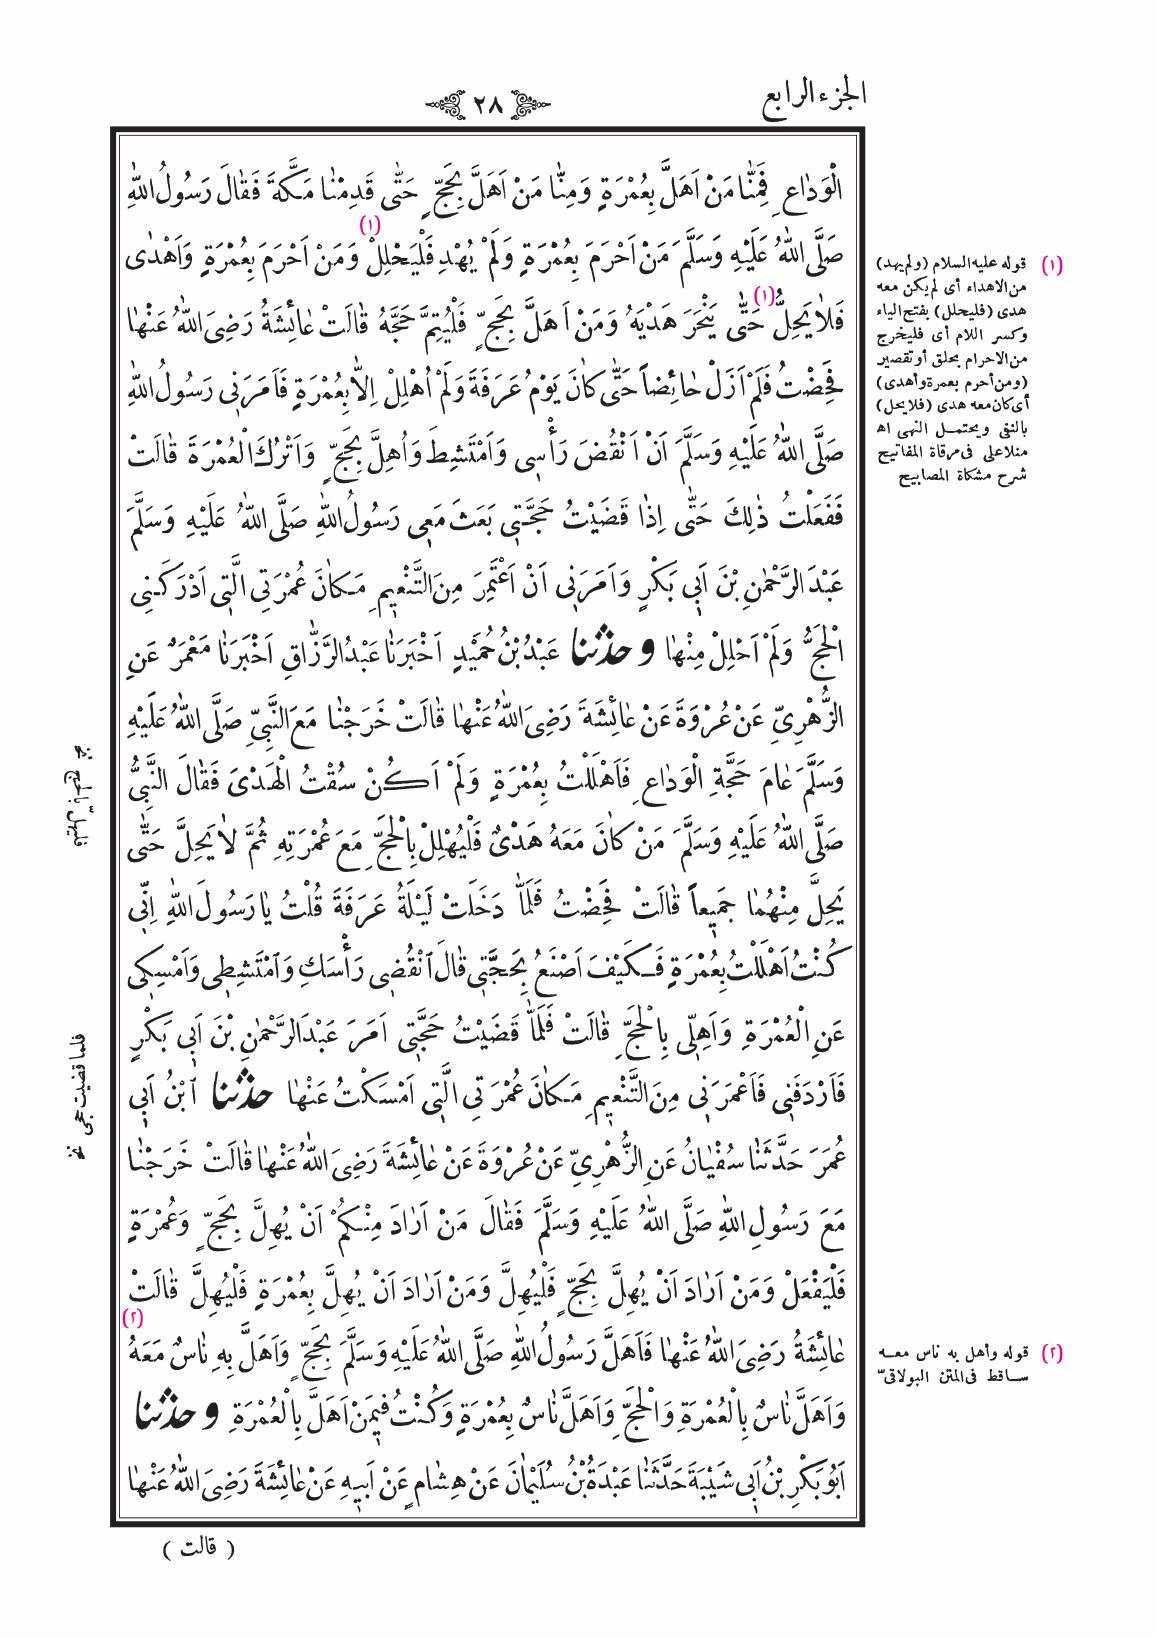 الجزء الرابع
٢٨
الْوَدَاعِ فَمِنَّا مَنْ اَهَلَّ بِعُمْرَةٍ وَمِنَّا مَنْ اَهَلَّ بِحَجٍّ حَتّٰى قَدِمْنَا مَكَّةَ فَقَالَ رَسُولُ اللّٰهِ
صَلَّى اللّٰهُ عَلَيْهِ وَسَلَّمَ مَنْ اَحْرَمَ بِعُمْرَةٍ وَلَمْ يُهْدِ فَلْيَحْلِلْ (١) وَمَنْ اَحْرَمَ بِعُمْرَةٍ وَاَهْدٰى
فَلَا يَحِلُّ (١) حَتّٰى يَنْحَرَ هَدْيَهُ وَمَنْ اَهَلَّ بِحَجٍّ فَلْيُتِمَّ حَجَّهُ قَالَتْ عَائِشَةُ رَضِىَ اللّٰهُ عَنْهَا
فَحِضْتُ فَلَمْ اَزَلْ حَائِضاً حَتّٰى كَانَ يَوْمُ عَرَفَةَ وَلَمْ اُهْلِلْ اِلَّا بِعُمْرَةٍ فَاَمَرَنِى رَسُولُ اللّٰهِ
صَلَّى اللّٰهُ عَلَيْهِ وَسَلَّمَ اَنْ اَنْقُضَ رَأْسِى وَاَمْتَشِطَ وَاُهِلَّ بِحَجٍّ وَاَتْرُكَ الْعُمْرَةَ قَالَتْ
فَفَعَلْتُ ذٰلِكَ حَتّٰى اِذَا قَضَيْتُ حَجَّتِى بَعَثَ مَعِى رَسُولُ اللّٰهِ صَلَّى اللّٰهُ عَلَيْهِ وَسَلَّمَ
عَبْدَ الرَّحْمٰنِ بْنَ اَبِى بَكْرٍ وَاَمَرَنِى اَنْ اَعْتَمِرَ مِنَ التَّنْعِيمِ مَكَانَ عُمْرَتِى الَّتِى اَدْرَكَنِى
الْحَجُّ وَلَمْ اَحْلِلْ مِنْهَا وحدثنا عَبْدُ بْنُ حُمَيْدٍ اَخْبَرَنَا عَبْدُ الرَّزَّاقِ اَخْبَرَنَا مَعْمَرٌ عَنِ
الزُّهْرِىِّ عَنْ عُرْوَةَ عَنْ عَائِشَةَ رَضِىَ اللّٰهُ عَنْهَا قَالَتْ خَرَجْنَا مَعَ النَّبِىِّ صَلَّى اللّٰهُ عَلَيْهِ
وَسَلَّمَ عَامَ حَجَّةِ الْوَدَاعِ فَاَهْلَلْتُ بِعُمْرَةٍ وَلَمْ اَكُنْ سُقْتُ الْهَدْىَ فَقَالَ النَّبِىُّ
صَلَّى اللّٰهُ عَلَيْهِ وَسَلَّمَ مَنْ كَانَ مَعَهُ هَدْىٌ فَلْيُهْلِلْ بِالْحَجِّ مَعَ عُمْرَتِهِ ثُمَّ لَا يَحِلَّ حَتّٰى
يَحِلَّ مِنْهُمَا جَمِيعاً قَالَتْ فَحِضْتُ فَلَمَّا دَخَلَتْ لَيْلَةُ عَرَفَةَ قُلْتُ يَا رَسُولَ اللّٰهِ اِنِّى
كُنْتُ اَهْلَلْتُ بِعُمْرَةٍ فَكَيْفَ اَصْنَعُ بِحَجَّتِى قَالَ ٱنْقُضِى رَأْسَكِ وَٱمْتَشِطِى وَاَمْسِكِى
عَنِ الْعُمْرَةِ وَاَهِلِّى بِالْحَجِّ قَالَتْ فَلَمَّا قَضَيْتُ حَجَّتِى اَمَرَ عَبْدَ الرَّحْمٰنِ بْنَ اَبِى بَكْرٍ
فَاَرْدَفَنِى فَاَعْمَرَنِى مِنَ التَّنْعِيمِ مَكَانَ عُمْرَتِى الَّتِى اَمْسَكْتُ عَنْهَا حدثنا ٱبْنُ اَبِى
عُمَرَ حَدَّثَنَا سُفْيَانُ عَنِ الزُّهْرِىِّ عَنْ عُرْوَةَ عَنْ عَائِشَةَ رَضِىَ اللّٰهُ عَنْهَا قَالَتْ خَرَجْنَا
مَعَ رَسُولِ اللّٰهِ صَلَّى اللّٰهُ عَلَيْهِ وَسَلَّمَ فَقَالَ مَنْ اَرَادَ مِنْكُمْ اَنْ يُهِلَّ بِحَجٍّ وَعُمْرَةٍ
فَلْيَفْعَلْ وَمَنْ اَرَادَ اَنْ يُهِلَّ بِحَجٍّ فَلْيُهِلَّ وَمَنْ اَرَادَ اَنْ يُهِلَّ بِعُمْرَةٍ فَلْيُهِلَّ قَالَتْ
عَائِشَةُ رَضِىَ اللّٰهُ عَنْهَا فَاَهَلَّ رَسُولُ اللّٰهِ صَلَّى اللّٰهُ عَلَيْهِ وَسَلَّمَ بِحَجٍّ وَاَهَلَّ بِهِ نَاسٌ مَعَهُ (٢)
وَاَهَلَّ نَاسٌ بِالْعُمْرَةِ وَالْحَجِّ وَاَهَلَّ نَاسٌ بِعُمْرَةٍ وَكُنْتُ فِيمَنْ اَهَلَّ بِالْعُمْرَةِ وحدثنا
اَبُو بَكْرِ بْنُ اَبِى شَيْبَةَ حَدَّثَنَا عَبْدَةُ بْنُ سُلَيْمَانَ عَنْ هِشَامٍ عَنْ اَبِيهِ عَنْ عَائِشَةَ رَضِىَ اللّٰهُ عَنْهَا
( قالت )
(١) قوله عليه السلام (ولم يهد)
من الاهداء أى لم يكن معه
هدى (فليحلل) بفتح الياء
وكسر اللام أى فليخرج
من الاحرام بحلق أو تقصير
(ومن أحرم بعمرة وأهدى)
أى كان معه هدى (فلا يحل)
بالنفى ويحتمل النهى اه
منلا على فى مرقاة المفاتيح
شرح مشكاة المصابيح
(٢) قوله وأهل به ناس معه
ساقط فى المتن البولاقىّ
فليهلّ بالحج نخ
فلما قضيت حجى نخ